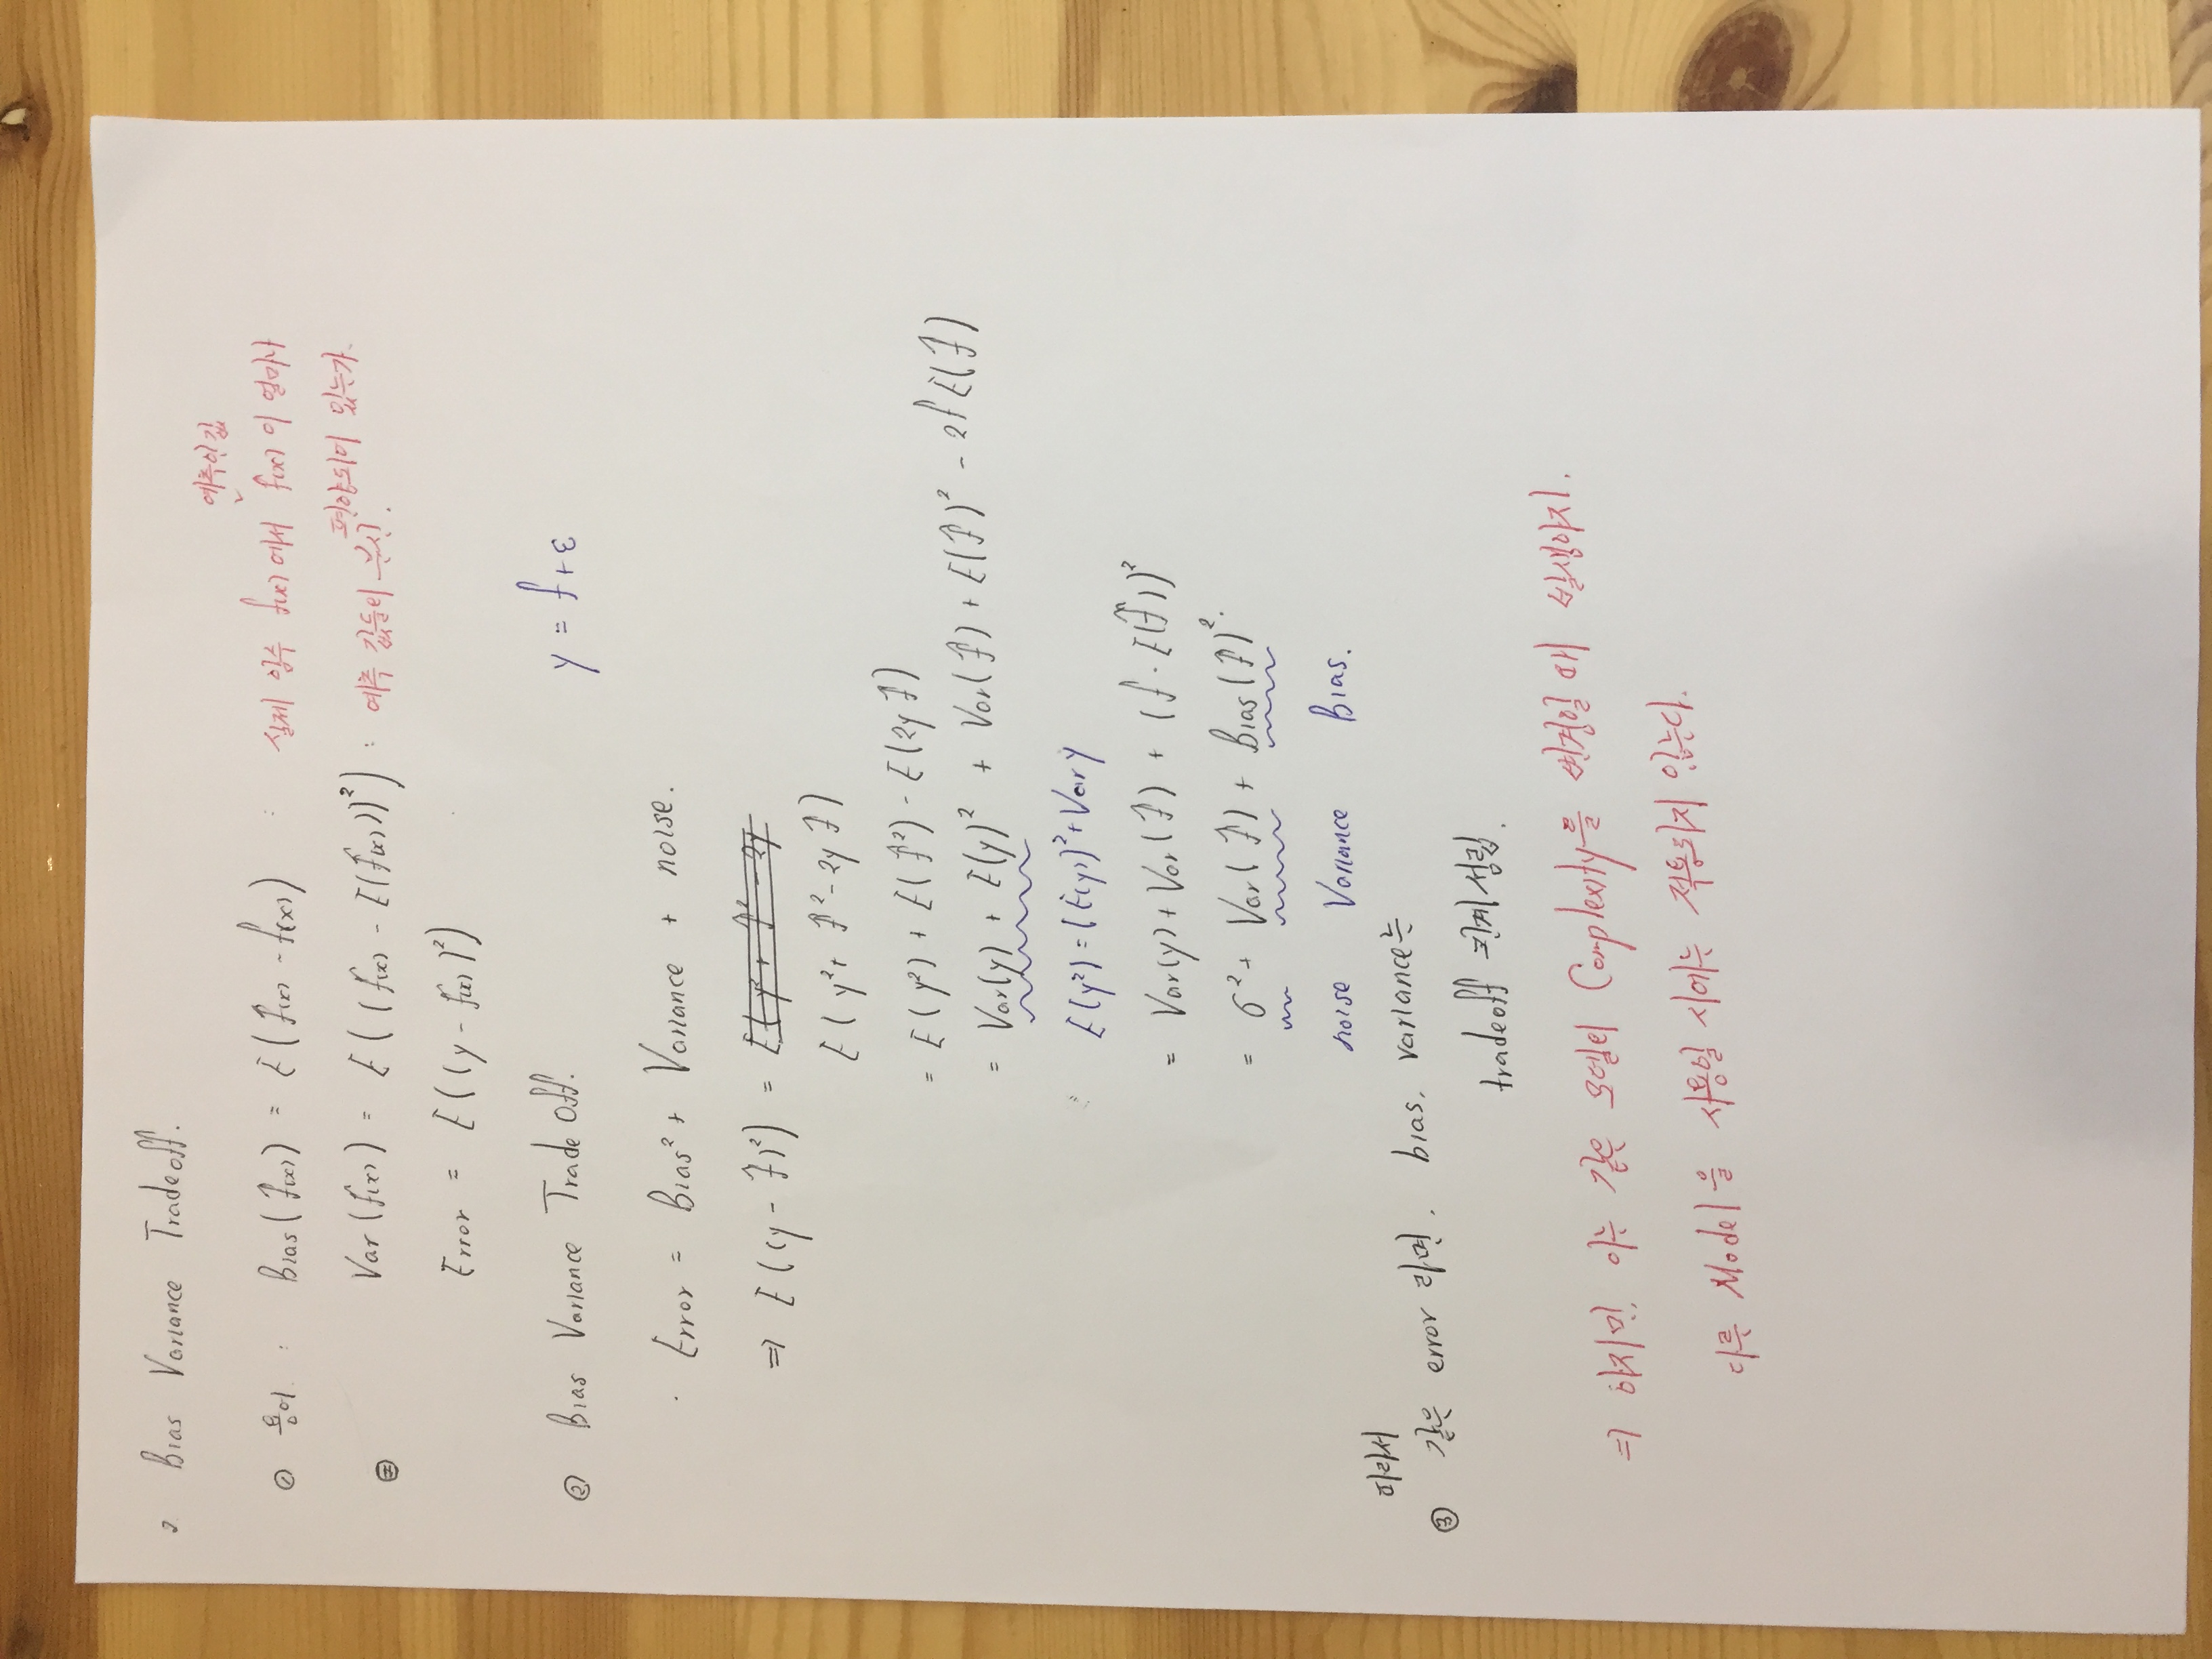 2. Bias Variance Tradeoff.
예측한 값
① 용어 : Bias( f̂(x) ) = E ( f̂(x) - f(x) ) : 실제 함수 f(x) 에서 f̂(x) 이 얼마나
편향되어 있는가.
Var ( f̂(x) ) = E ( ( f̂(x) - E( f̂(x) ) )² ) : 예측 값들의 분산.
Error = E ( ( y - f̂(x) )² )
② Bias Variance Trade Off. y = f + ε
· Error = Bias² + Variance + noise.
⇒ E ( (y - f̂)² ) = E( y² + f̂² - 2y
E ( y² + f̂² - 2y f̂ )
= E ( y² ) + E ( f̂² ) - E ( 2y f̂ )
= Var(y) + E(y)² + Var( f̂ ) + E( f̂ )² - 2f E( f̂ )
E(y²) = (E(y))² + Var y
= Var(y) + Var( f̂ ) + ( f - E( f̂ ) )²
= σ² + Var( f̂ ) + Bias( f̂ )².
noise Variance Bias.
따라서
③ 같은 error 라면. bias, variance는
tradeoff 관계 성립.
⇒ 하지만, 이는 같은 모델의 Complexity를 변경할 때 발생하지.
다른 Model 을 사용할 시에는 적용되지 않는다.